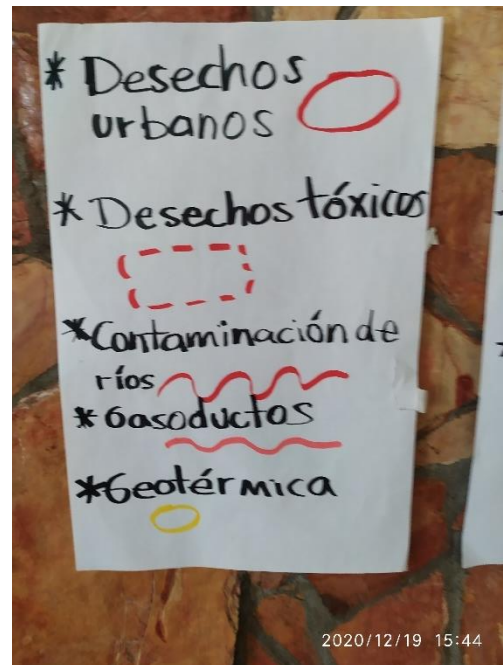 * Desechos
urbanos
* Desechos tóxicos
* Contaminación de
ríos
* Gasoductos
* Geotérmica
2020/12/19 15:44